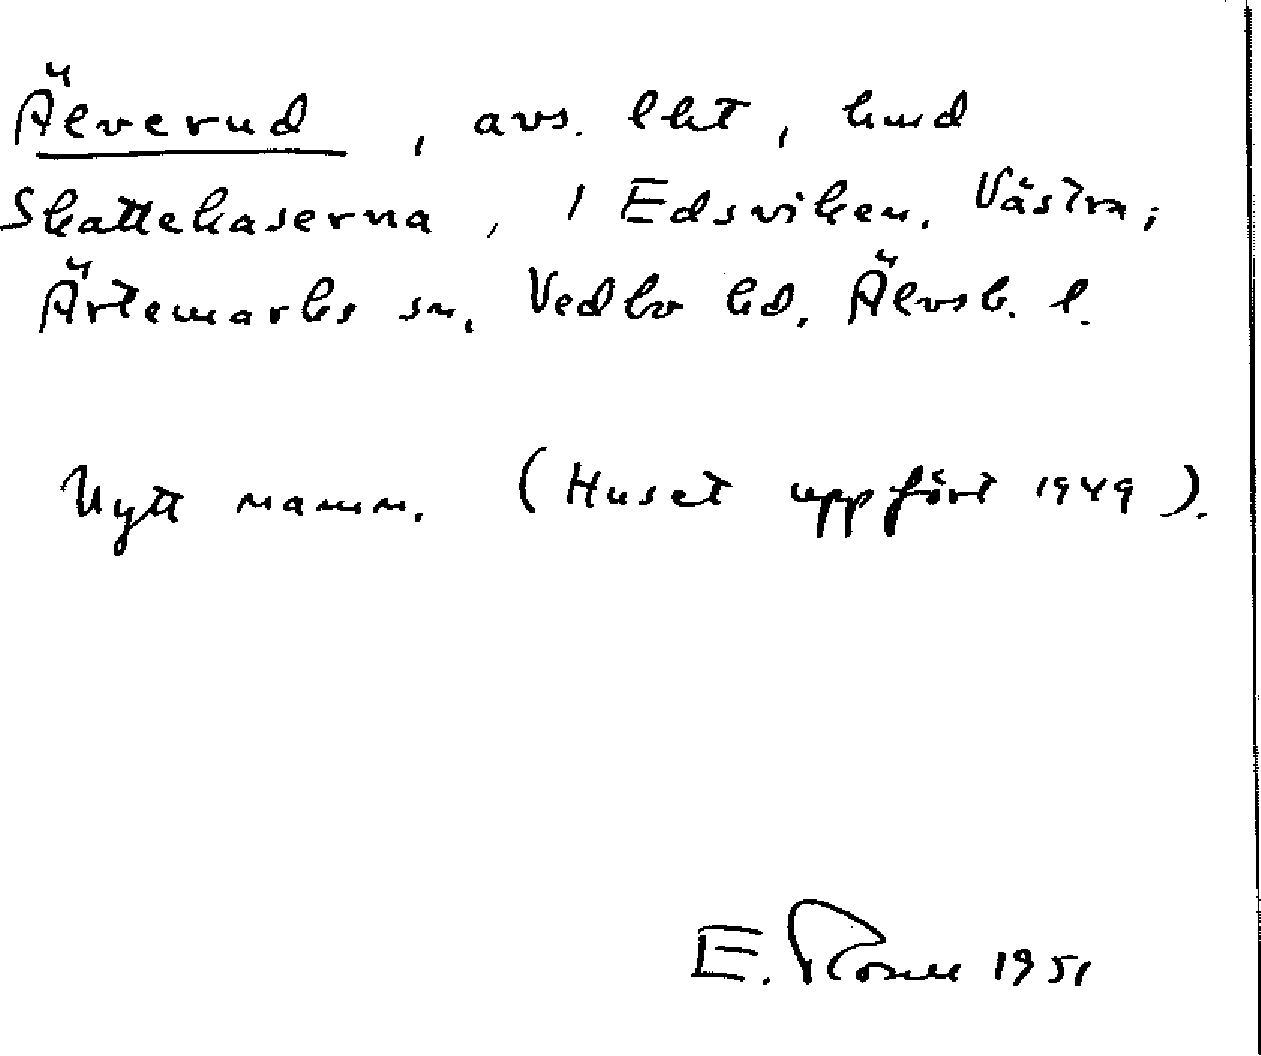 Älverud, avs. lht, hmd
Skattekaserna, 1 Edsviken, Västra;
Ärtemarks sn, Vedbo hd, Älvsb. l.
Nytt namn. (Huset uppfört 1949).
E. 1951